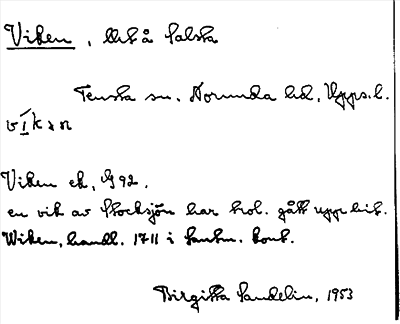 Viken, Utå Salsta
Tensta sn. Norunda hd, Upps. l.
Viken ek, G 92.
en vik av Stocksjön har trol. gått upp hit.
Wiken, handl. 1711 i Lantm. kont.
Birgitta Sundelin, 1953